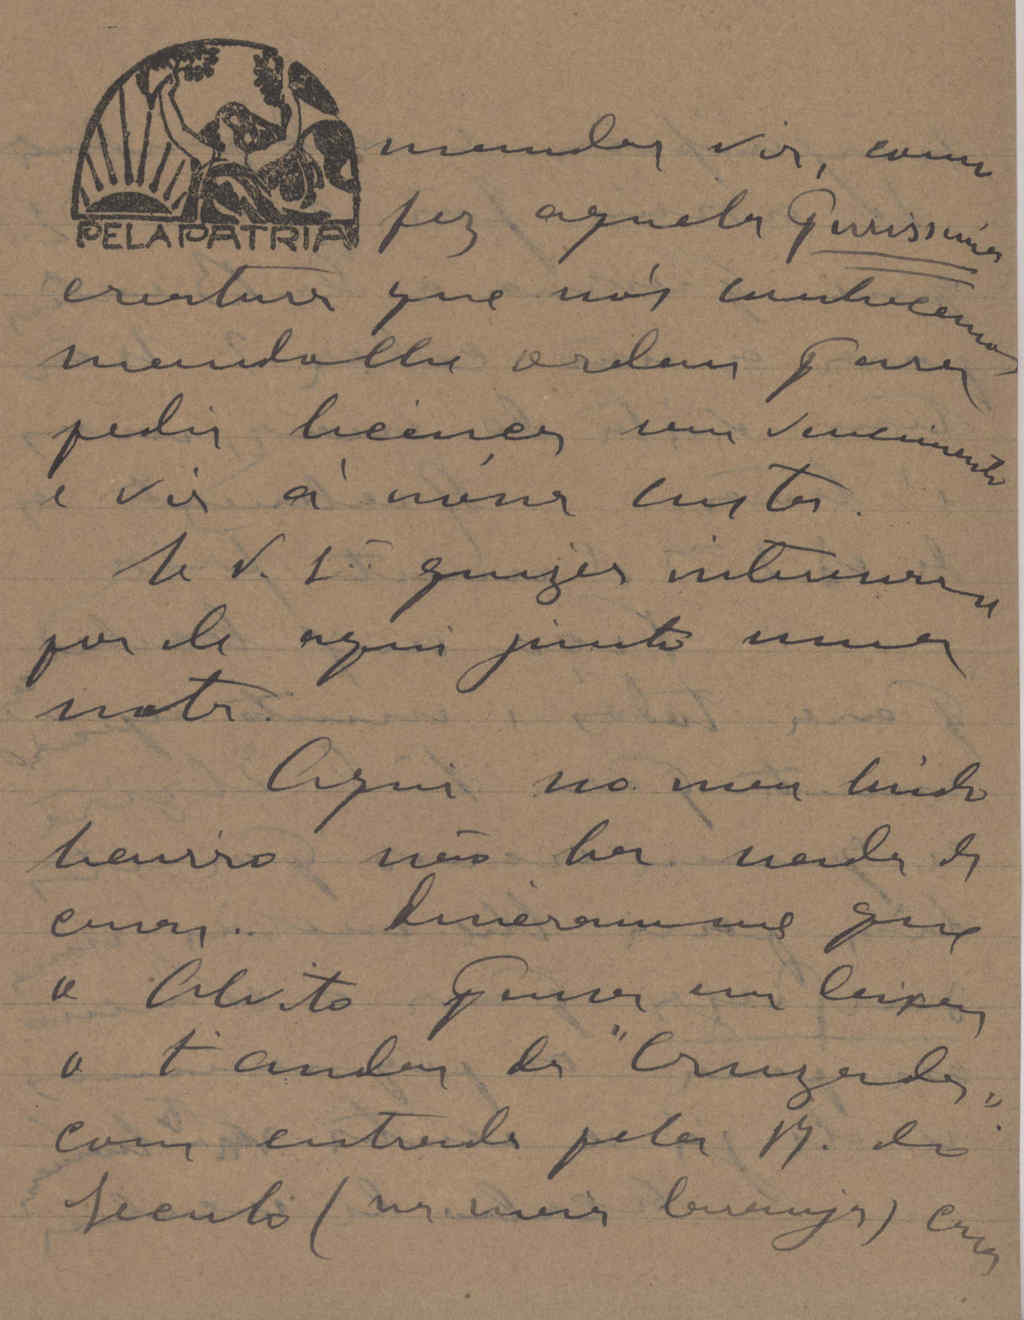 PELA PATRIA
mandar vir, como
fez aquela Purissima
creatura que nós conhecemos
mandolhe ordem para
pedir licença sem vencimento
e vir á nóssa custa.
Se V. quizer interessarse
por ele aqui junto uma
nota.
Aqui no meu lindo
bairro não ha nada de
casas.. Disseramme que
o Alvito pensa em deixar
o 1º andar da "Cruzada"
com entrada pela R. do
Seculo (na meia laranja) com